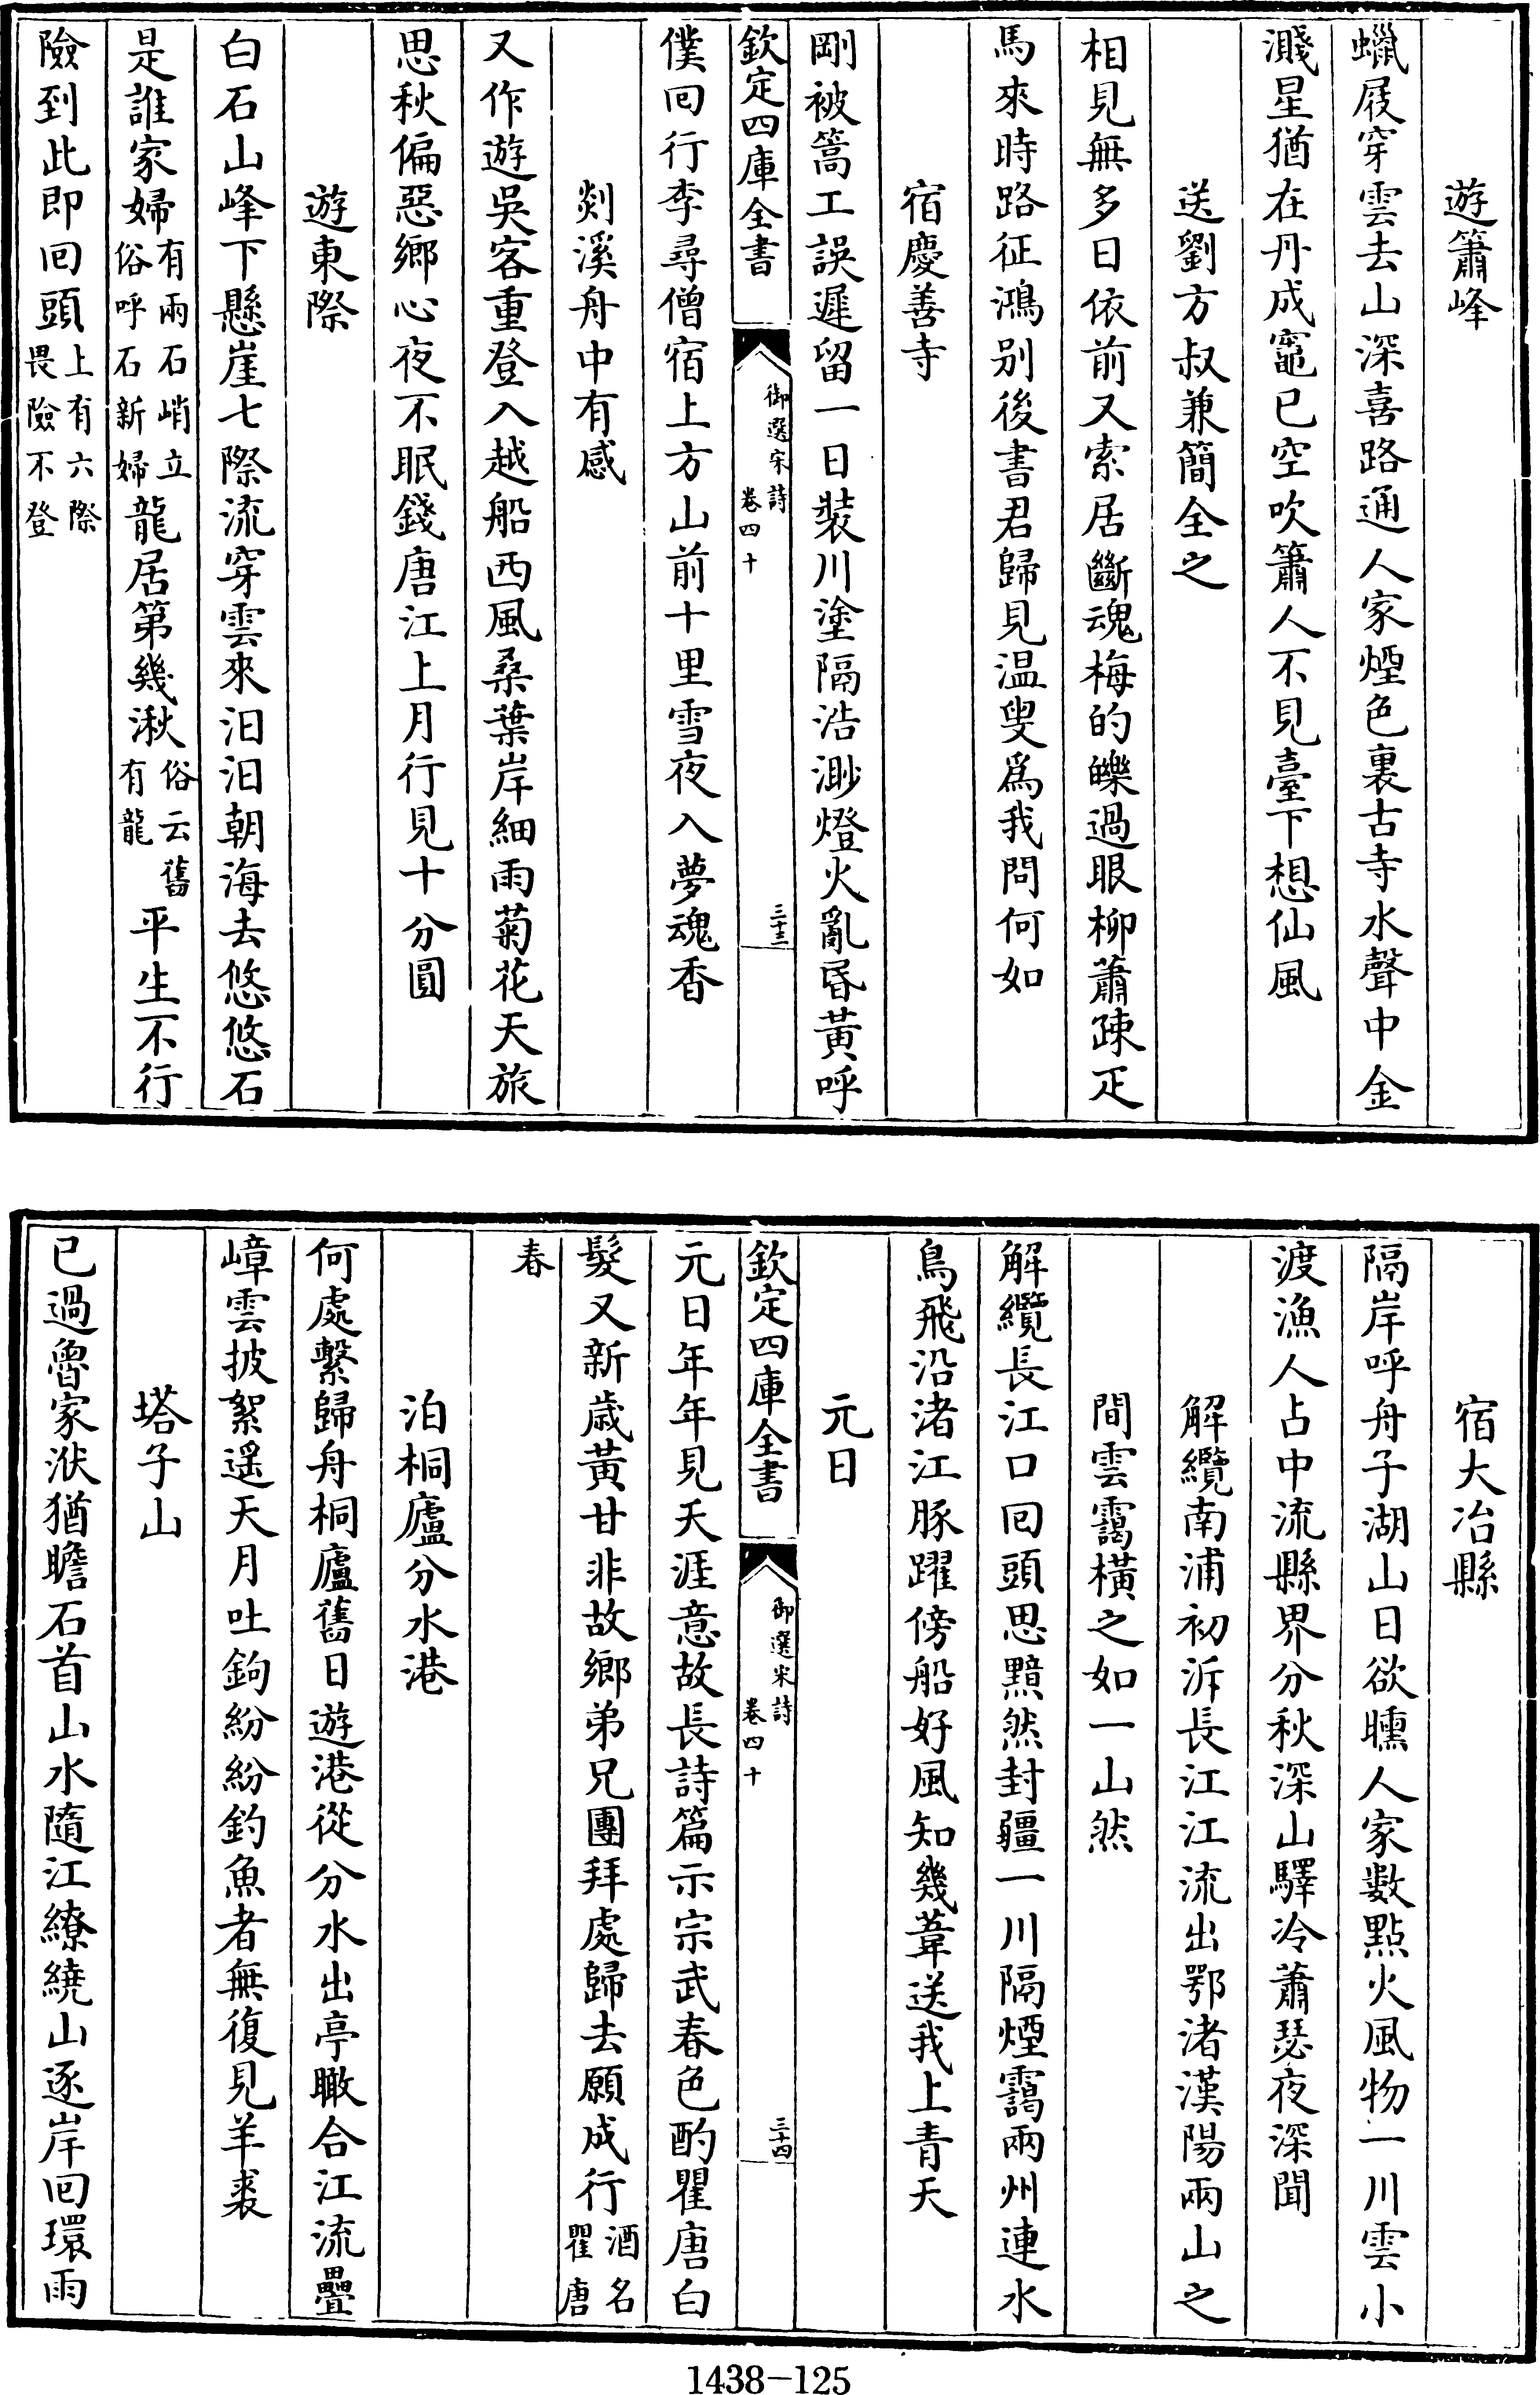 遊簫峰
蠟屐穿雲去山深喜路通人家煙色裏古寺水聲中金
濺星猶在丹成竈已空吹簫人不見臺下想仙風
送劉方叔兼簡全之
相見無多日依前又索居斷魂梅的皪過眼柳蕭疎疋
馬來時路征鴻别後書君歸見温叟爲我問何如
宿慶善寺
剛被篙工誤遲留一日裝川塗隔浩渺燈火亂昏黃呼
欽定四庫全書
御選宋詩
卷四十
三十三
僕囘行李尋僧宿上方山前十里雪夜入夢魂香
剡溪舟中有感
又作遊吳客重登入越船西風桑葉岸細雨菊花天旅
思秋偏惡鄉心夜不眠錢唐江上月行見十分圓
遊東際
白石山峰下懸崖七際流穿雲來汩汩朝海去悠悠石
是誰家婦有兩石峭立俗呼石新婦龍居第幾湫俗云舊有龍平生不行
險到此即囘頭上有六際畏險不登
宿大冶縣
隔岸呼舟子湖山日欲曛人家數點火風物一川雲小
渡漁人占中流縣界分秋深山驛冷蕭瑟夜深聞
解纜南浦初泝長江江流出鄂渚漢陽兩山之
間雲靄橫之如一山然
解纜長江口囘頭思黯然封疆一川隔煙靄兩州連水
鳥飛沿渚江豚躍傍船好風知幾葦送我上青天
元日
欽定四庫全書
御選宋詩
卷四十
三十四
元日年年見天涯意故長詩篇示宗武春色酌瞿唐白
髮又新歲黃甘非故鄉弟兄團拜處歸去願成行酒名瞿唐
春
泊桐廬分水港
何處繫歸舟桐廬舊日遊港從分水出亭瞰合江流疊
嶂雲披絮遥天月吐鉤紛紛釣魚者無復見羊裘
塔子山
已過魯家洑猶瞻石首山水隨江繚繞山逐岸囘環雨
1438-125